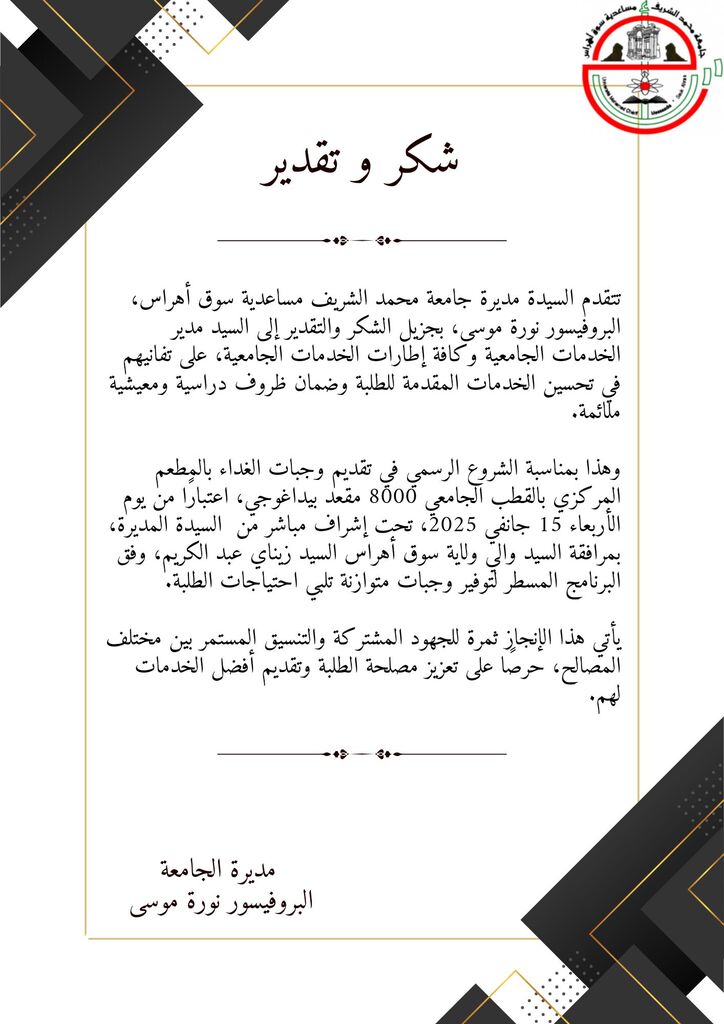 جامعة محمد الشريف مساعدية سوق أهراس
شكر و تقدير
تتقدم السيدة مديرة جامعة محمد الشريف مساعدية سوق أهراس،
البروفيسور نورة موسى، بجزيل الشكر والتقدير إلى السيد مدير
الخدمات الجامعية وكافة إطارات الخدمات الجامعية، على تفانيهم
في تحسين الخدمات المقدمة للطلبة وضمان ظروف دراسية ومعيشية
ملائمة.
وهذا بمناسبة الشروع الرسمي في تقديم وجبات الغداء بالمطعم
المركزي بالقطب الجامعي 8000 مقعد بيداغوجي، اعتبارًا من يوم
الأربعاء 15 جانفي 2025، تحت إشراف مباشر من السيدة المديرة،
بمرافقة السيد والي ولاية سوق أهراس السيد زيناي عبد الكريم، وفق
البرنامج المسطر لتوفير وجبات متوازنة تلبي احتياجات الطلبة.
يأتي هذا الإنجاز ثمرة للجهود المشتركة والتنسيق المستمر بين مختلف
المصالح، حرصًا على تعزيز مصلحة الطلبة وتقديم أفضل الخدمات
لهم.
مديرة الجامعة
البروفيسور نورة موسى